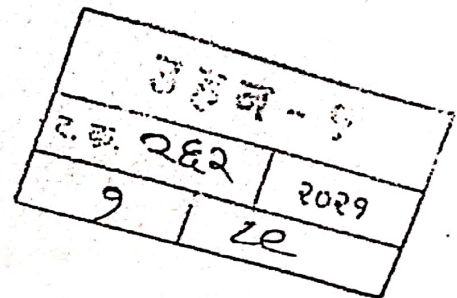 उहन - १
द. क्र. २६२ २०२१
१